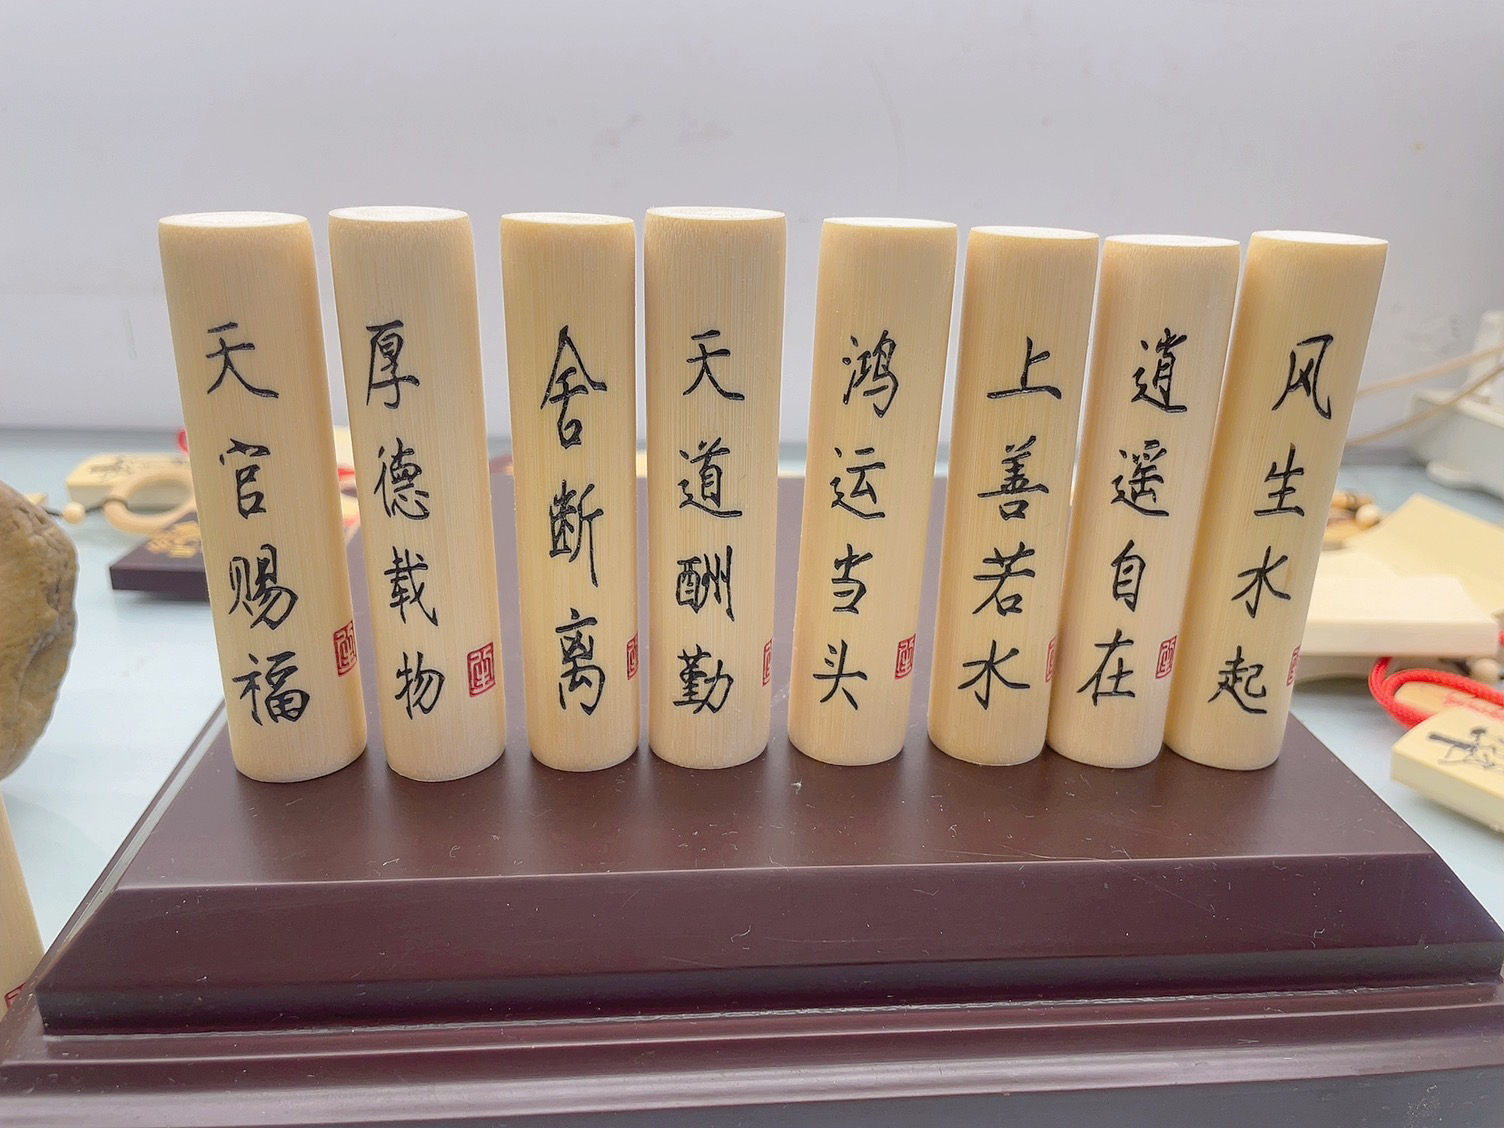 天官赐福
厚德载物
舍断离
天道酬勤
鸿运当头
上善若水
逍遥自在
风生水起